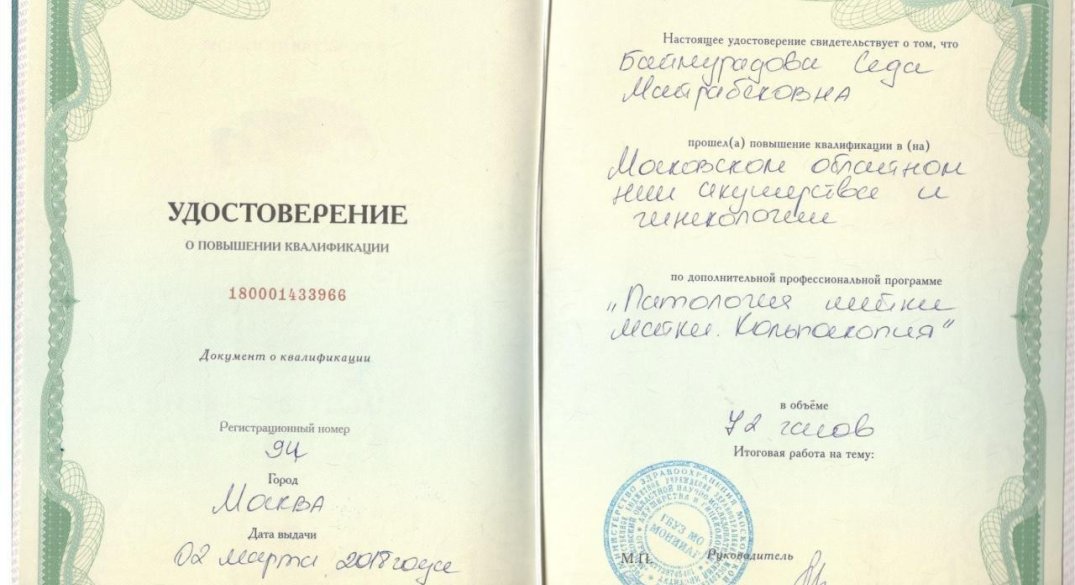 УДОСТОВЕРЕНИЕ
О ПОВЫШЕНИИ КВАЛИФИКАЦИИ
180001433966
Документ о квалификации
Регистрационный номер
94
Город
Москва
Дата выдачи
02 марта 2018 года
Настоящее удостоверение свидетельствует о том, что
Баймурадова Седа
Майрабековна
прошел(а) повышение квалификации в (на)
Московском областном
нии акушерства и
гинекологии
по дополнительной профессиональной программе
„Патология шейки
матки. Кольпоскопия"
в объёме
72 часов
Итоговая работа на тему:
ГБУЗ МО
МОНИИАГ
М.П.
Руководитель